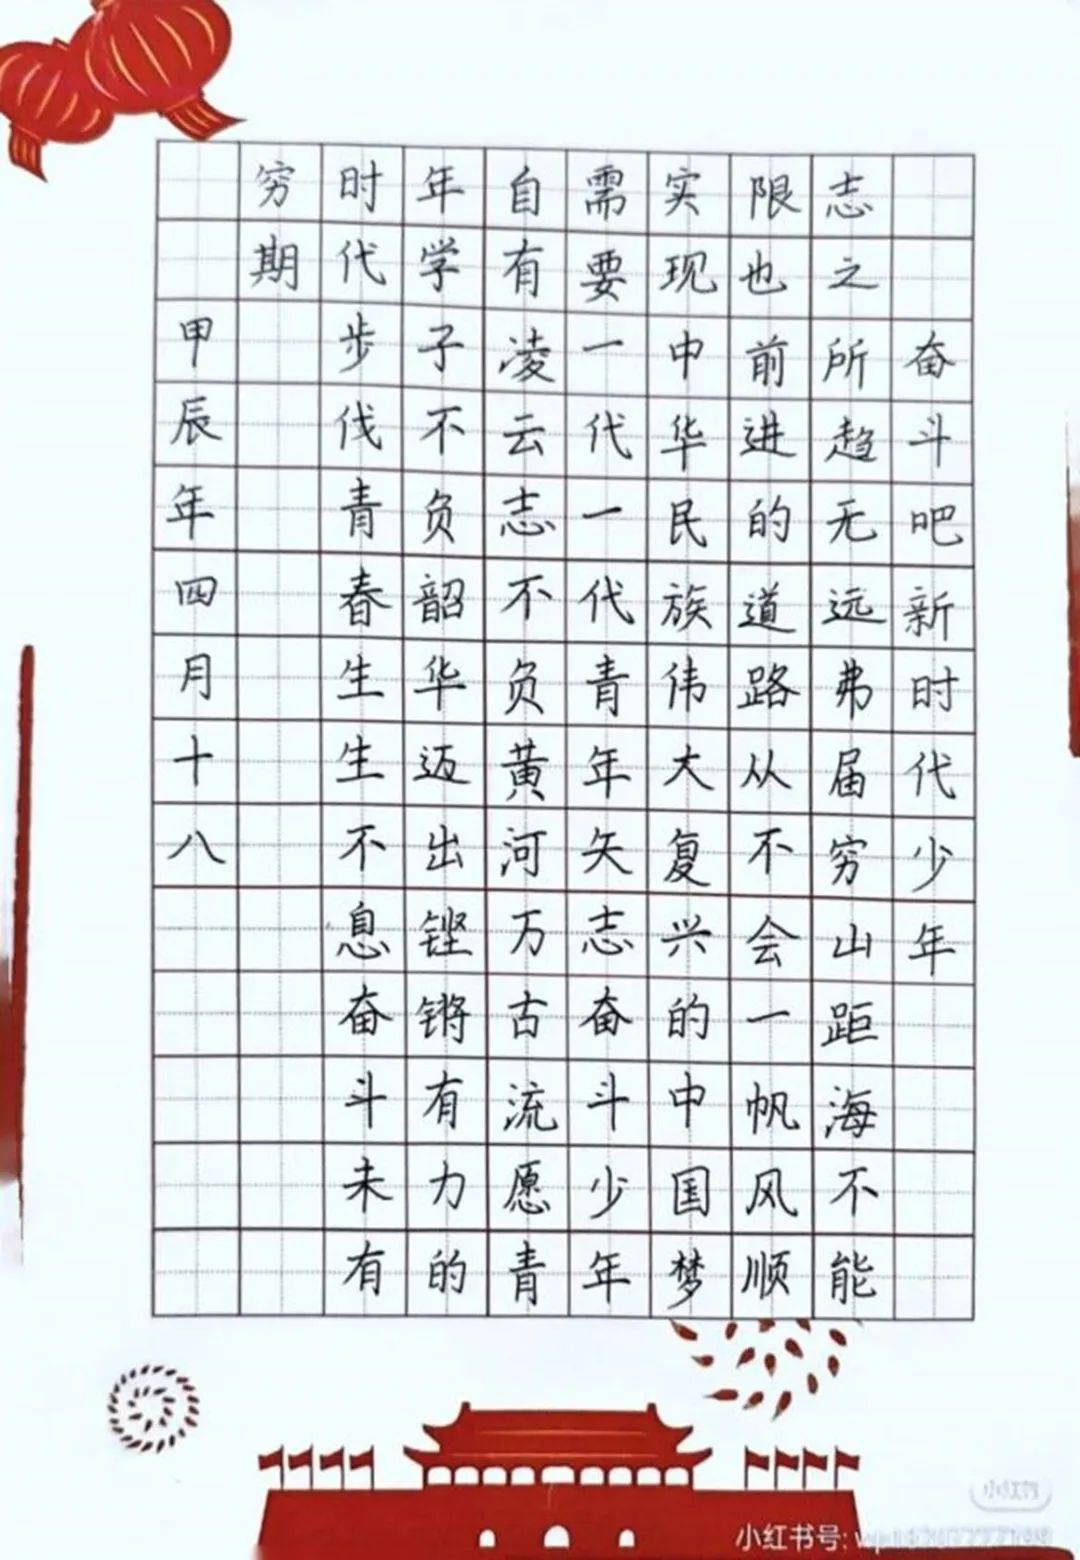 奋斗吧新时代少年
志之所趋无远弗届穷山距海不能
限也前进的道路从不会一帆风顺
实现中华民族伟大复兴的中国梦
需要一代一代青年矢志奋斗少年
自有凌云志不负黄河万古流愿青
年学子不负韶华迈出铿锵有力的
时代步伐青春生生不息奋斗未有
穷期
甲辰年四月十八
小红书
小红书号: